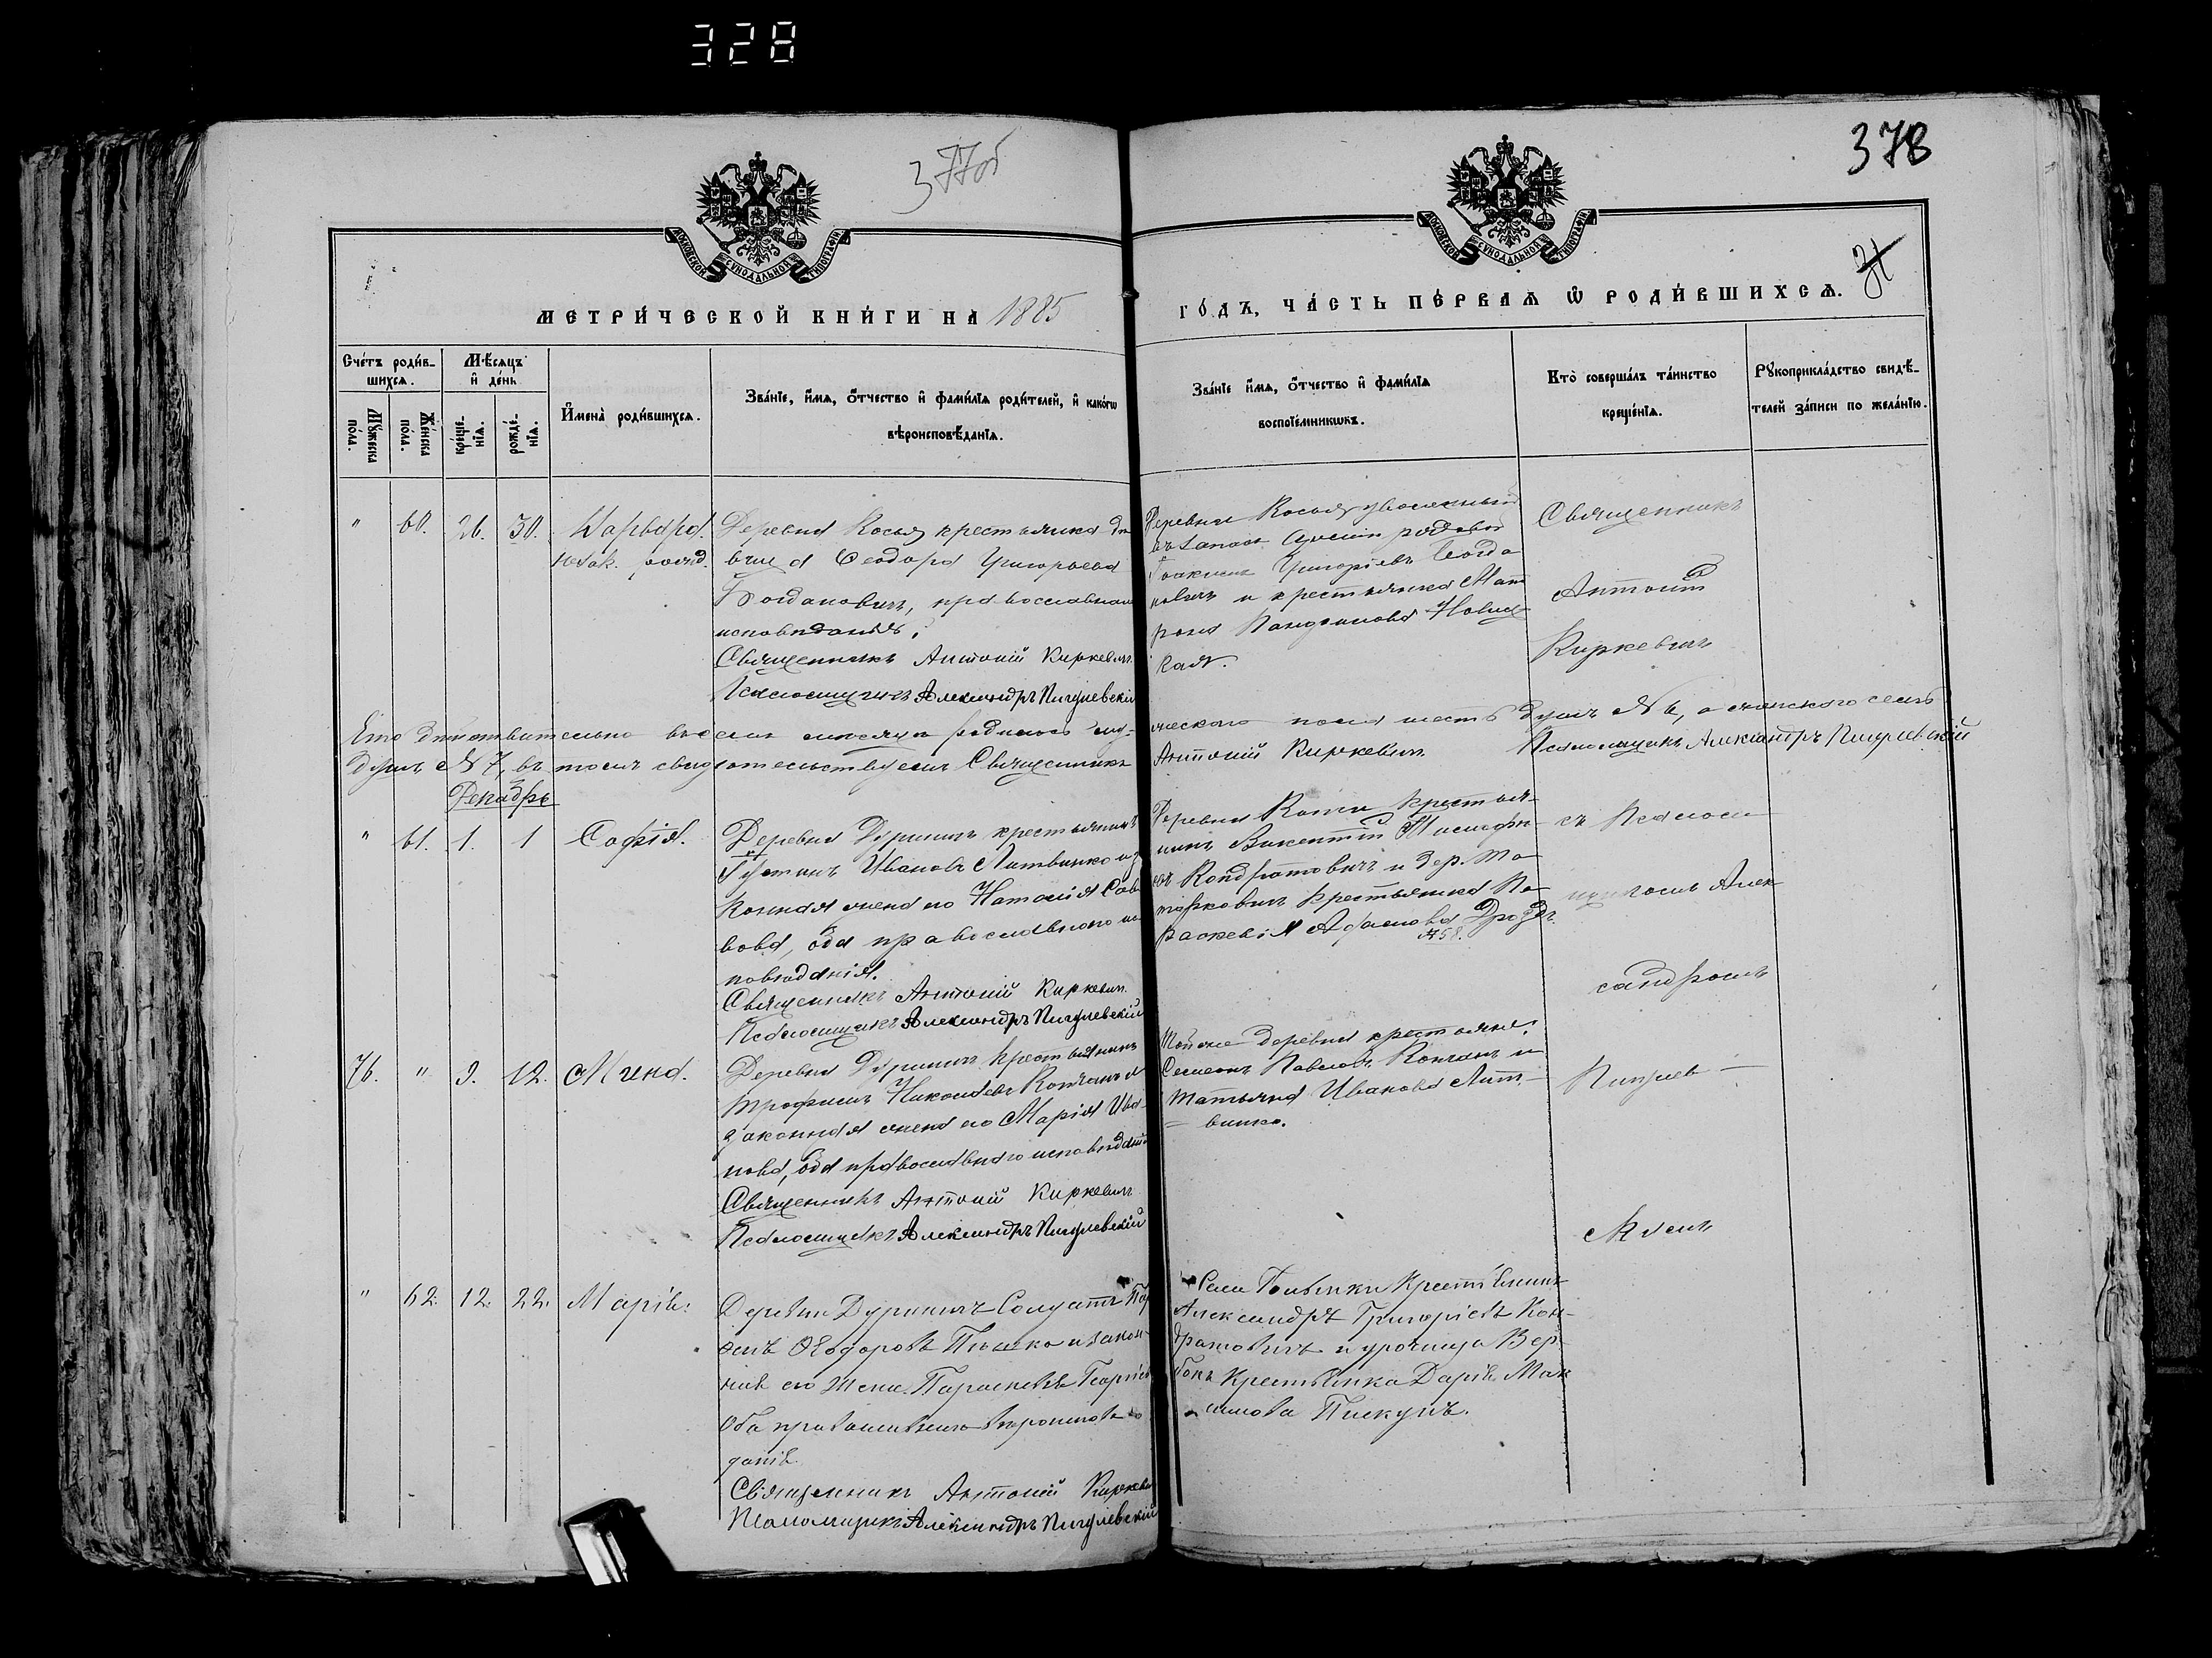 328
377об
378
МОСКОВСКОЙ СѴНОДАЛЬНОЙ ТИПОГРАФІИ
МОСКОВСКОЙ СѴНОДАЛЬНОЙ ТИПОГРАФІИ
МЕТРИ́ЧЕСКОЙ КНИ́ГИ НА 1885
ГО́ДЪ, ЧА́СТЬ ПЕ́РВАѦ Ѽ РОДИ́ВШИХСѦ.
Сче́тъ роди́в-
шихсѧ.
Мꙋ́жеска по́ла.
Же́нска по́ла.
Мѣ́сѧцъ и҆ де́нь
креще́-нїѧ.
рожде́-нїѧ.
И҆мена̀ роди́вшихсѧ.
Зва́нїе, и҆́мѧ, ѻ҆́тчество и҆ фами́лїѧ роди́телей, и҆ како́гѡ
вѣроисповѣ́данїѧ.
Зва́нїе и҆́мѧ, ѻ҆́тчество и҆ фами́лїѧ
воспрїе́мникѡвъ.
Кто̀ соверша́лъ та́инство
креще́нїѧ.
Рꙋкоприкла́дство свидѣ́-
телей за́писи по жела́нїю.
" 60. 26. 30. Варвара.
Деревни Косыя крестьянка дѣ
вица Ѳеодора Григорьева
Богдановичъ, православнаго
исповѣданія.
Священникъ Антоній Киркевичъ
Псаломщикъ Александръ Пигулевскій
Деревни Косыя уволенный
въ запасъ рядовой
Григоріевъ Богда
новичъ и крестьянка Мат
рона Новиц
кая.
Священникъ
Антоній
Киркевичъ
Что дѣйствительно въ семъ мѣсяцѣ родилось му-
жескаго пола шесть душъ № 6, а женскаго семь
душъ № 7, въ томъ свидѣтельствуемъ Священникъ
Антоній Киркевичъ Псаломщикъ Александръ Пигулевскій
Декабрь
" 61. 1. 1 Софія.
Деревни Дуричъ крестьянинъ
Иванов Литвинко и за
конная жена его Наталія Сав
вова, оба православнаго ис
повѣданія.
Священникъ Антоній Киркевичъ
Псаломщикъ Александръ Пигулевскій
Деревни крестья-
нинъ Викентій
въ Кондратовичъ и дер. Мо
крестьянка Па
раскевія Дроздъ.
№ 58.
съ Псаломщи
комъ Алек
сандромъ
Пигулев
скимъ
76. " 9. 12. Мина.
Деревни Дуричъ крестьянинъ
Трофимъ Николаевъ Кончанъ и
законная жена его Марія Ива-
нова, оба православнаго исповѣданія
Священникъ Антоній Киркевичъ
Псаломщикъ Александръ Пигулевскій
Той же деревни крестьяне:
Семеонъ Павловъ Кончанъ и
Татьяна Иванова Лит-
винко.
" 62. 12. 22. Марія.
Деревни Дуричъ Солдатъ
Ѳеодоровъ и закон-
ная его жена Параскева Георгіева
Оба православнаго вѣроисповѣ
данія
Священникъ Антоній Киркевичъ
Псаломщикъ Александръ Пигулевскій
Села крестьянинъ
Александръ Григоріевъ Кон-
дратовичъ и урочища Вер
бокъ крестьянка Дарія Мак
симова Пискунъ.